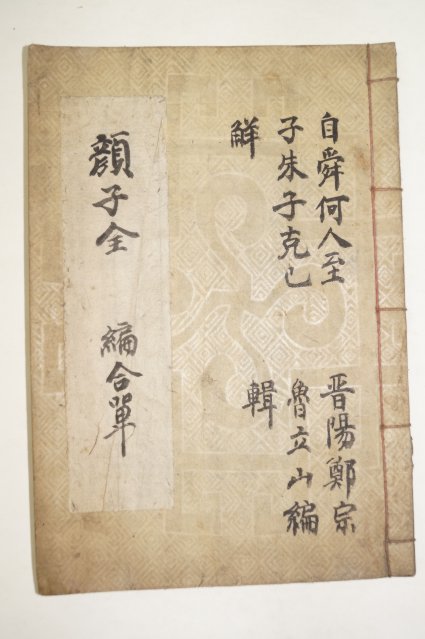 自舜何人至
子朱子克己
鮮
晋陽鄭宗
魯立山編
輯
顔子全
編合單